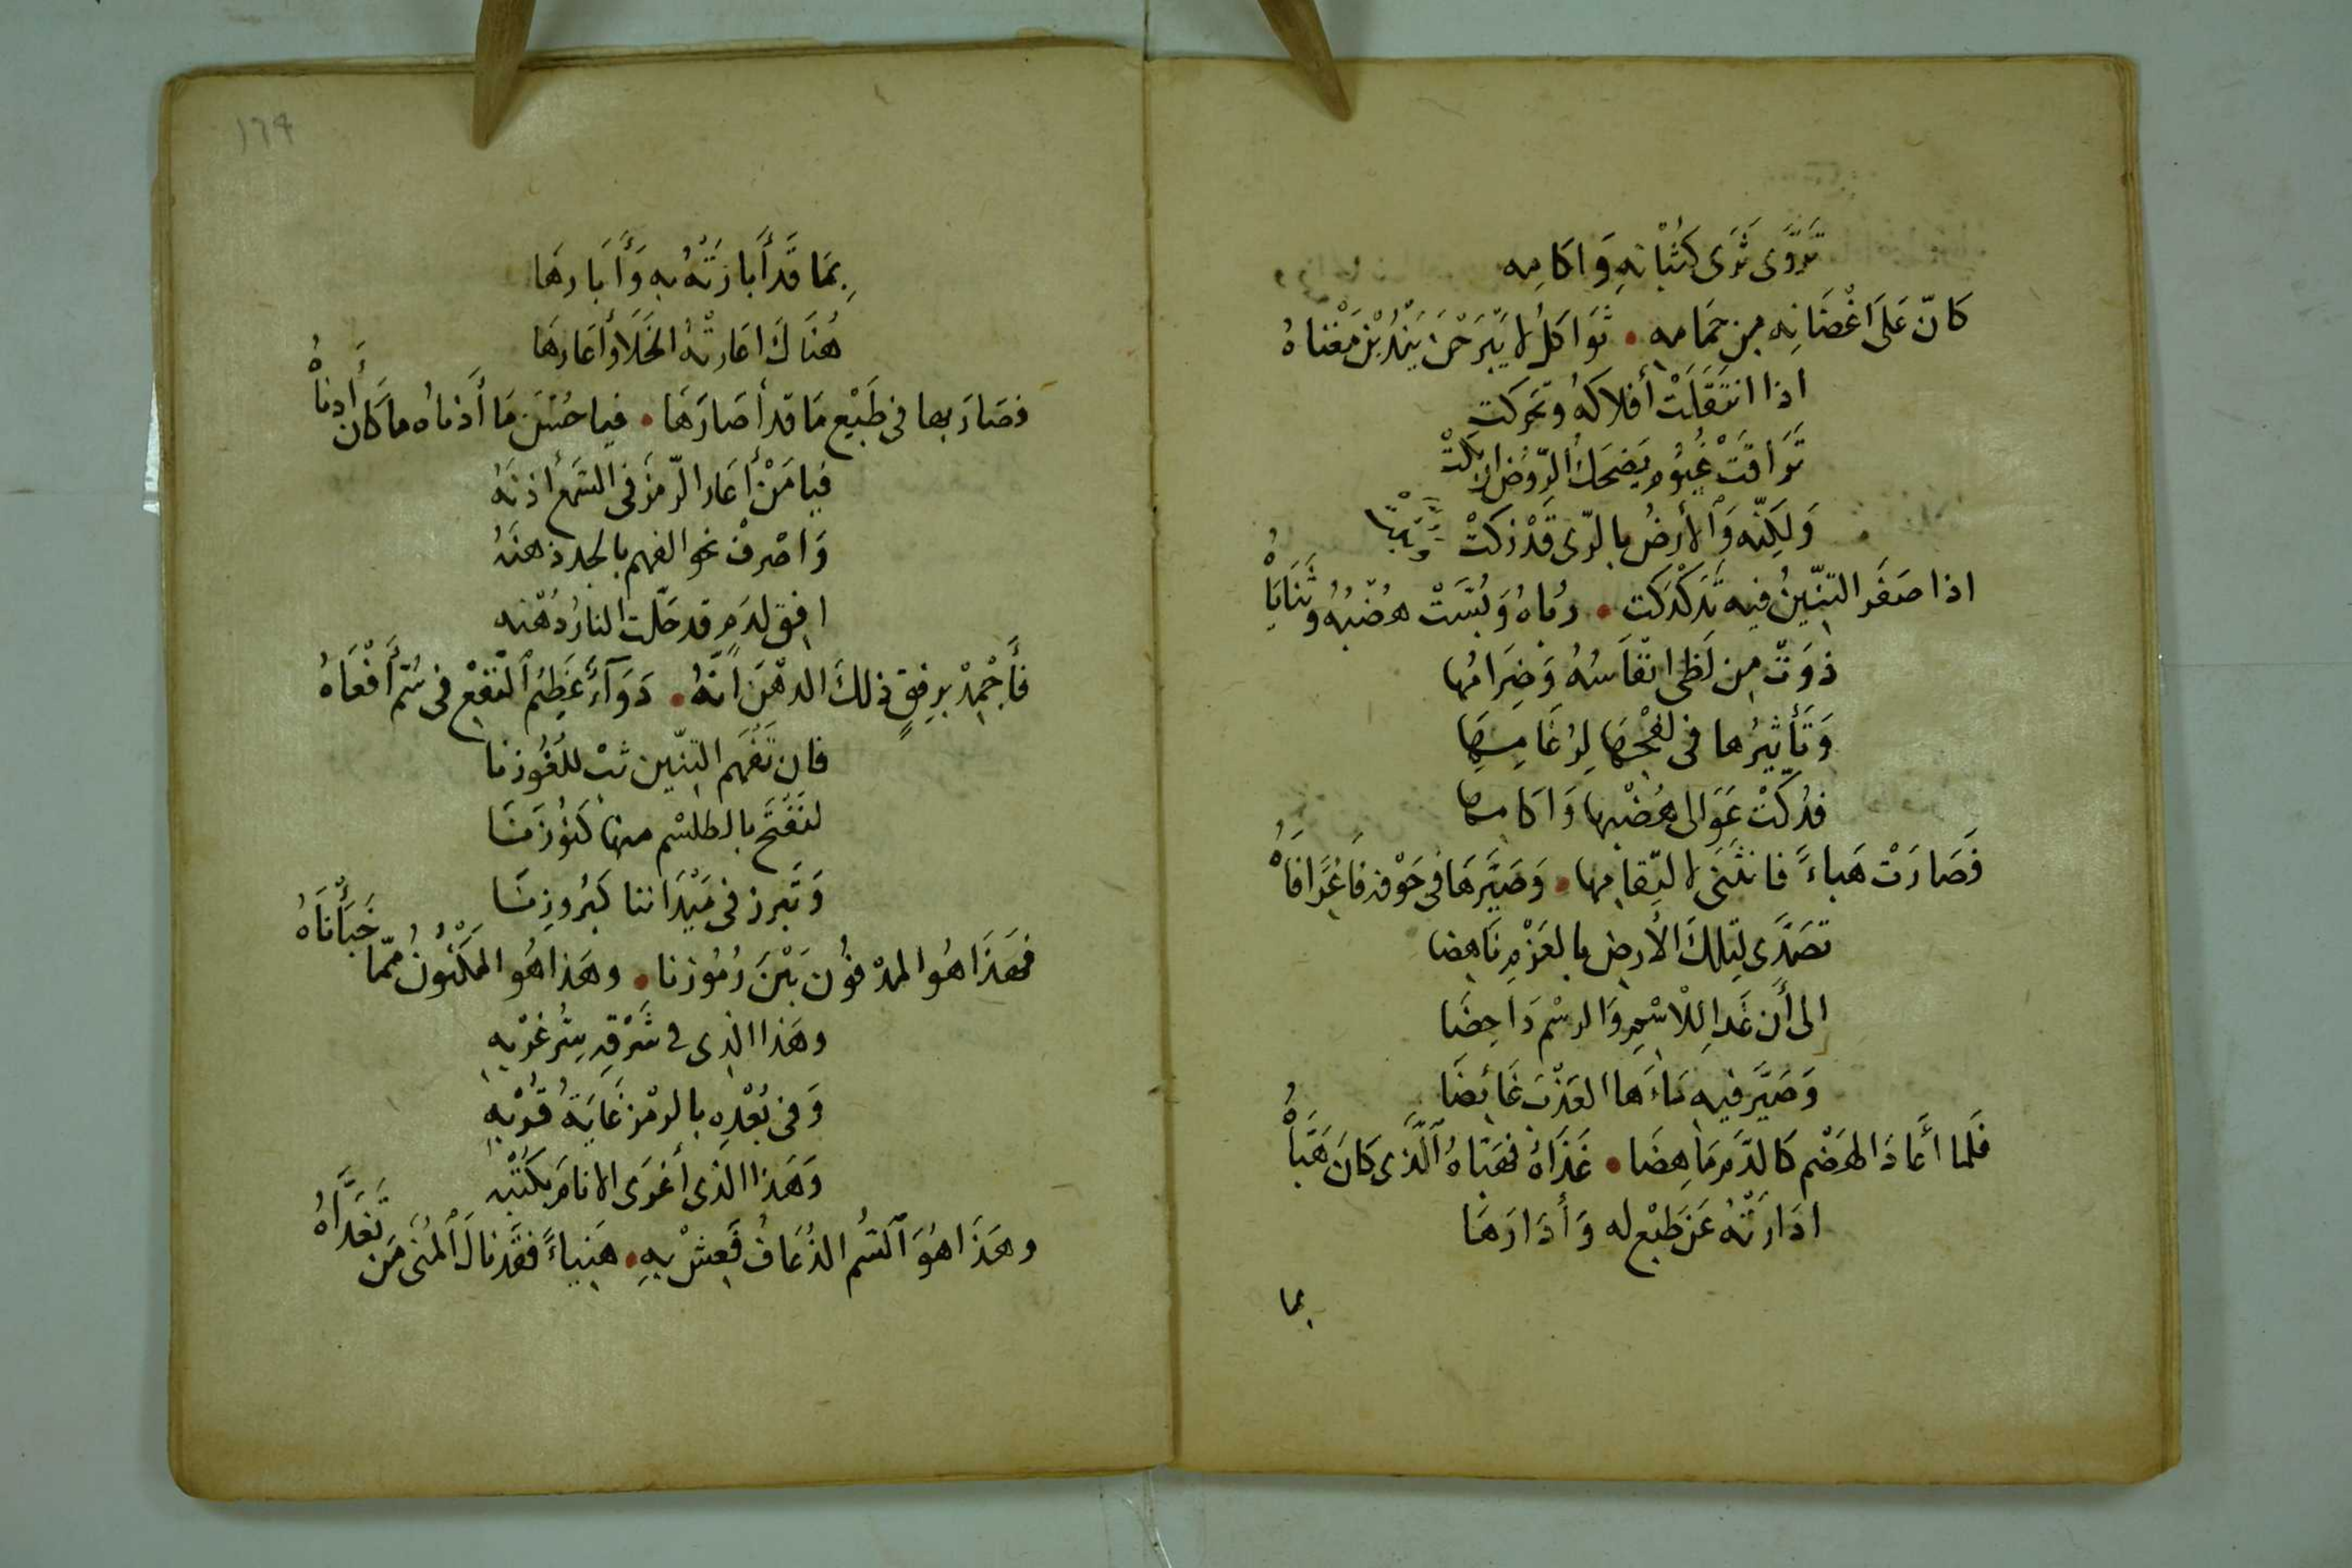 تَرَوَّى ثَرَى كُثْبَانِهِ وَاكَامِه
كانّ عَلَى اَغْصَانِه مِن حَمَامِهِ • ثَوَاكلُ لا يَبْرَحْنَ يَنْدُبْنَ مَغْنَاهُ
اذا انتَقَلَتْ أفلاكهُ وتحركت
تَرَاقَتْ غيُومٌ يَضحَكُ الرّوضُ ان بَكَتْ
وَلكِنّه وَالأرضُ بالرّى قَدْ زكَتْ
اذا صَفَر التِنّينُ فيه تَدَكْدَكت • رُباهُ وَبُسَّتْ هُضْبُهُ وثَنَايَاهُ
ذوَتْ مِن لَظى انفَاسُهُ وَضِرَامُها
وَتأثِيرُها فى لفْحِهَا لِرُغَامِهَا
فدُكّتْ عَوَالى هُضْبِها وَاكَامها
فَصَارَتْ هَباءً فانثَنَى لالتِقامِها • وَصَيَّرهَا فى جَوْفه فَاغِرًا فَاهُ
تصَدَّى لتِلكَ الأرضِ بالعَزْمِ نَاهِضا
الى أَن غَدا لِلْاسْمِ وَالرسْم دَاحِضَا
وَصَيَّر فيهِ مَاءَها العَذْبَ غَائِضَا
فَلما أَعَادَ الهَضْم كَالدّم مَاهِضَا • غَذَاهُ فهَبّاهُ الَّذى كَانَ هَبَّاهُ
ادَارَتْهُ عَن طبْع له وَأَدَارَهَا
بما
١٦٩
بِمَا قَد أَبَارَتْهُ بِه وَأَبَارهَا
هُنَاكَ اعَارتْهُ الحَلَا وأعَارهَا
فصَارَ بها فى طَبْع مَا قد أصَارَهَا • فيا حُسْنَ مَا أَدْناه ما كان أَدنَاهُ
فيا مَنْ أعَار الرّمزَ فى السَّمعِ أُذنَهُ
وَاصْرفْ نحو الفهم بالجدِ ذهنَهُ
افِق لدَمٍ قد حَلّت النارُ دُهْنه
فَأَجْمِدْ بِرِفقٍ ذلكَ الدهْنَ انَّهُ • دَوَآءٌ عَظِيمُ النَّفعْ فى سُمِّ أَفْعَاهُ
فان تَفْهَم التِنّين ثبْ للغُوزنا
لتَفْتَح بالطلسْم منها كنُوزَنَا
وَتَبرز فى مَيْدَاننا كبُروزِنَا
فهَذَا هُو المدْفوُن بَيْنَ رُمُوزنا • وهَذا هُو المكْنُونُ مِمّا خَبَأْنَاهُ
وهَذا الذِى فى شَرْقِهِ سِرُّ غَرْبهِ
وَفى بُعْدِه بالرمْز غَايَةُ قُرْبهِ
وَهَذا الَّذى أَغرَى الانامَ بكَتْبهِ
وهَذَا هُوَ السُّم الذُعَافُ فَعِشْ بِهِ • هَنِياءً فقَد نالَ المُنَى مَن تَغَدَّاهُ